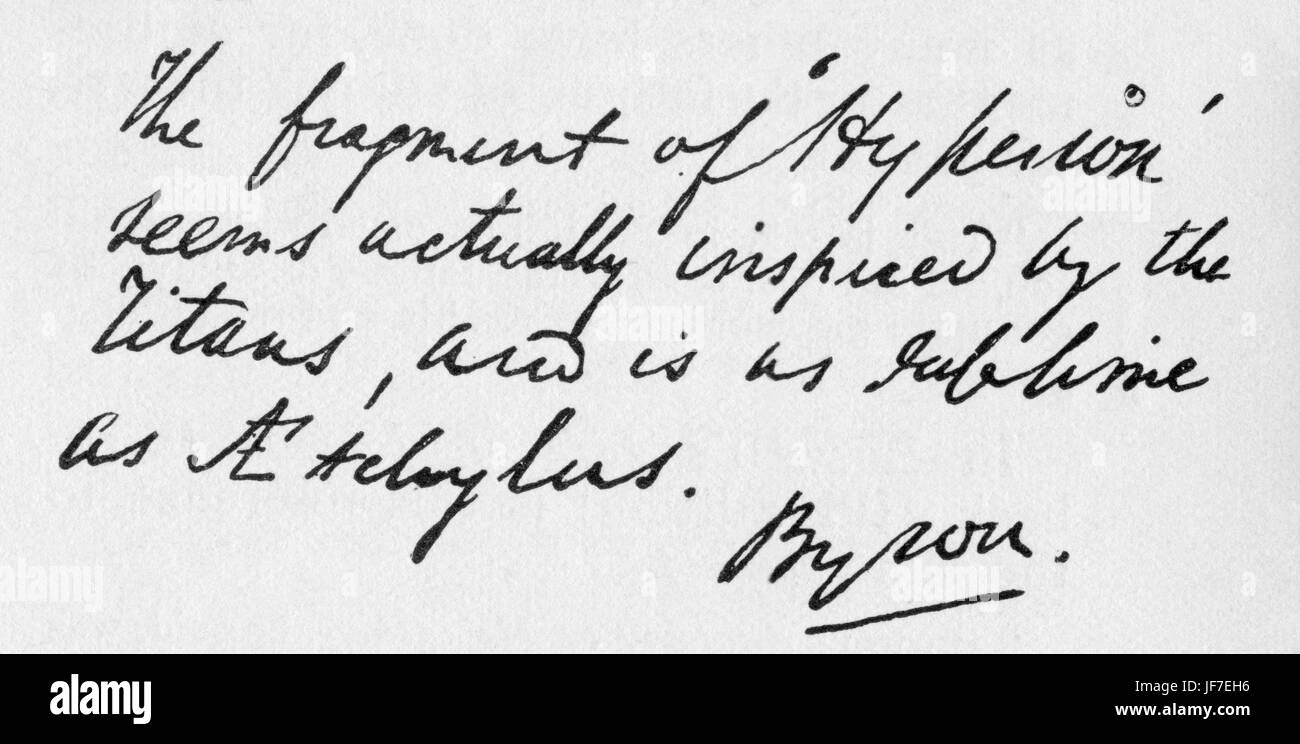 The fragment of 'Hyperion'
seems actually inspired by the
Titans, and is as sublime
as Æschylus.
Byron.
alamy stock photo
JF7EH6
www.alamy.com